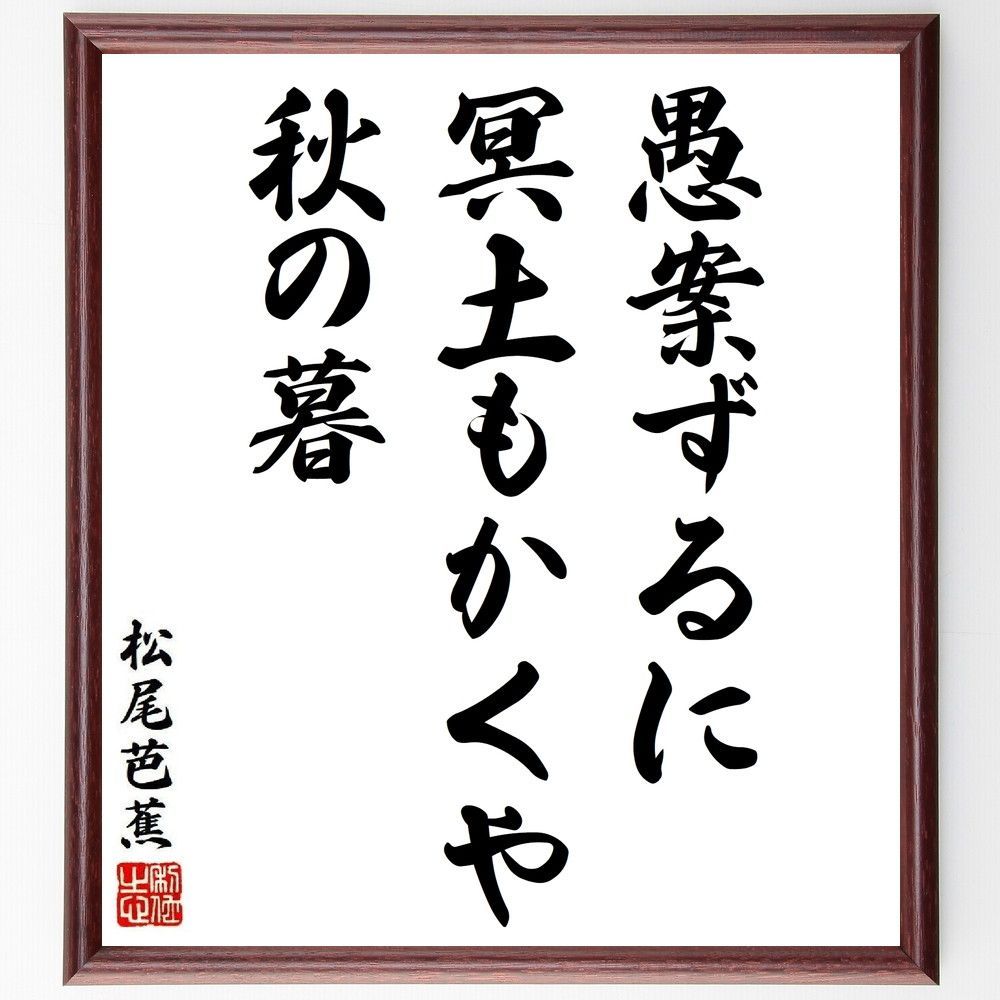 愚案ずるに
冥土もかくや
秋の暮
松尾芭蕉